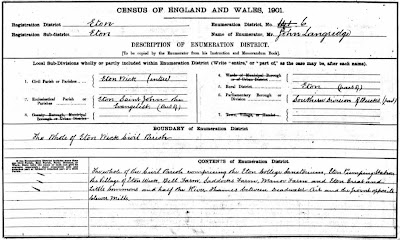 CENSUS OF ENGLAND AND WALES, 1901.
Registration District Eton
Enumeration District, No. 6
Registration Sub-district Eton
Name of Enumerator, Mr. John Langridge
DESCRIPTION OF ENUMERATION DISTRICT.
[To be copied by the Enumerator from his Instruction and Memorandum Book].
Local Sub-Divisions wholly or partly included within Enumeration District (Write "entire," or "part of," as the case may be, after each name).
1. Civil Parish or Parishes Eton Wick (entire)
2. Ecclesiastical Parish or Parishes Eton, Saint John the Evangelist (Part of)
3. County Borough, Municipal Borough, or Urban District
4. Wards of Municipal Borough or of Urban District
5. Rural District Eton (part of)
6. Parliamentary Borough or Division Southern Division of Bucks (part)
7. Town, Village, or Hamlet
BOUNDARY of Enumeration District
The Whole of Eton Wick Civil Parish
CONTENTS of Enumeration District
The whole of the Civil Parish comprising the Eton College Sanatorium, Eton Pumping Station
the Village of Eton Wick, Bell Farm, Saddocks Farm, Manor Farm and Eton Great and
Little Commons and half the River Thames between Deadwater Ait and the point opposite
Clewer Mill